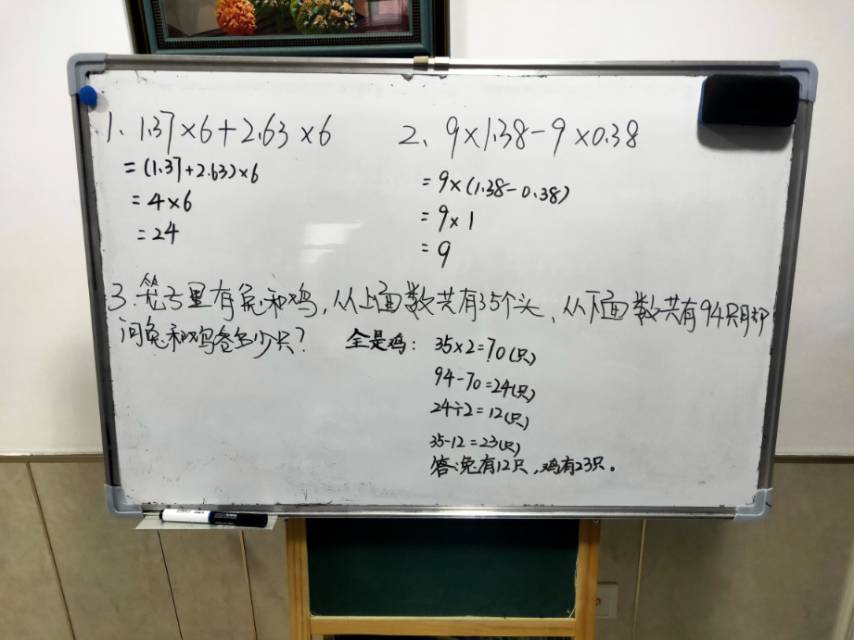 1、1.37×6+2.63×6
=(1.37+2.63)×6
=4×6
=24
2、9×1.38-9×0.38
=9×(1.38-0.38)
=9×1
=9
3.笼子里有兔和鸡,从上面数共有35个头、从下面数共有94只脚
问兔和鸡各多少只?
全是鸡:35×2=70(只)
94-70=24(只)
24÷2=12(只)
35-12=23(只)
答:兔有12只,鸡有23只。